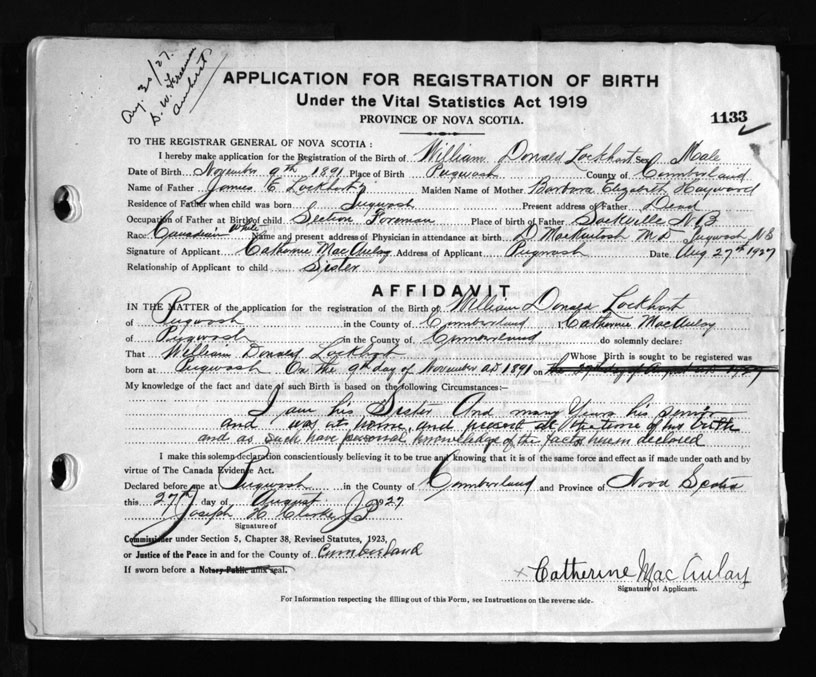 Aug. 30/27.
D. W.
Amherst
APPLICATION FOR REGISTRATION OF BIRTH
Under the Vital Statistics Act 1919
PROVINCE OF NOVA SCOTIA.
1133
TO THE REGISTRAR GENERAL OF NOVA SCOTIA :
I hereby make application for the Registration of the Birth of William Donald Lockhart Sex Male
Date of Birth November 9th 1891 Place of Birth Pugwash County of Cumberland
Name of Father James E. Lockhart Maiden Name of Mother Barbara Elizabeth Hayward
Residence of Father when child was born Pugwash Present address of Father Dead
Occupation of Father at Birth of child Section Foreman Place of birth of Father Sackville N B
Race Canadian White Name and present address of Physician in attendance at birth D Mackintosh M D Pugwash N S
Signature of Applicant Catherine MacAulay Address of Applicant Pugwash Date Aug 27th 1927
Relationship of Applicant to child Sister
AFFIDAVIT
IN THE MATTER of the application for the registration of the Birth of William Donald Lockhart
of Pugwash in the County of Cumberland I Catherine MacAulay
of Pugwash in the County of Cumberland do solemnly declare:
That William Donald Lockhart Whose Birth is sought to be registered was
born at Pugwash On the 9th day of November AD 1891 on the 27th day of August A.D. 1927
My knowledge of the fact and date of such Birth is based on the following Circumstances:—
I am his Sister And many Years his senior
and was at home, and present at the time of his birth
and as such have personal knowledge of the facts herein declared
I make this solemn declaration conscientiously believing it to be true and knowing that it is of the same force and effect as if made under oath and by
virtue of The Canada Evidence Act.
Declared before me at Pugwash in the County of Cumberland and Province of Nova Scotia
this 27th day of August 1927
Joseph H. Clarke J P
Signature of
Commissioner under Section 5, Chapter 38, Revised Statutes, 1923,
or Justice of the Peace in and for the County of Cumberland
If sworn before a Notary Public affix seal.
x Catherine MacAulay
Signature of Applicant.
For Information respecting the filling out of this Form, see Instructions on the reverse side.